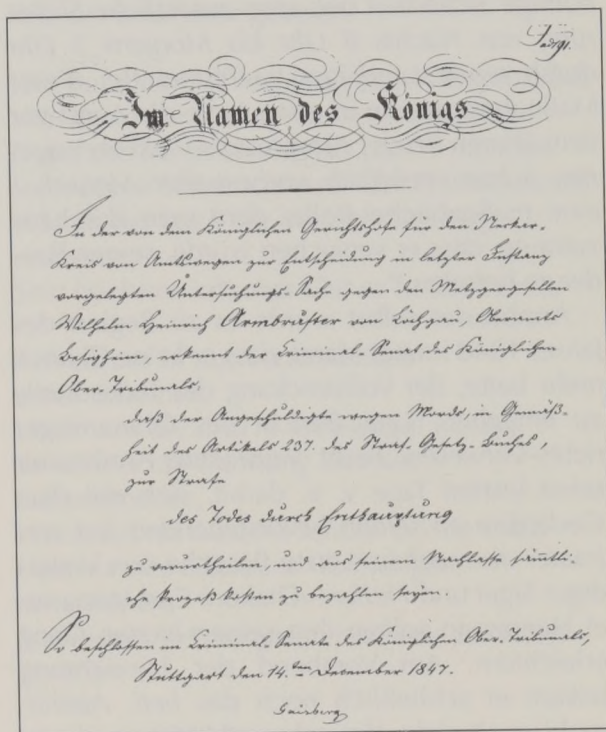 Im Namen des Königs
In der von dem Königlichen Gerichtshofe für den Neckar-
Kreis von Amtswegen zur Entscheidung in letzter Instanz
vorgelegten Untersuchungs-Sache gegen den Metzgergesellen
Wilhelm Heinrich Armbruster von Löchgau, Oberamts
Besigheim, erkennt der Criminal-Senat des Königlichen
Ober-Tribunals:
daß der Angeschuldigte wegen Mords, in Gemäß-
heit des Artikels 237. des Straf-Gesetz-Buches,
zur Strafe
des Todes durch Enthauptung
zu verurtheilen, und aus seinem Nachlasse sämmtli-
che Prozeßkosten zu bezahlen seyen.
So beschlossen im Criminal-Senate des Königlichen Ober-Tribunals,
Stuttgart den 14.ten December 1847.